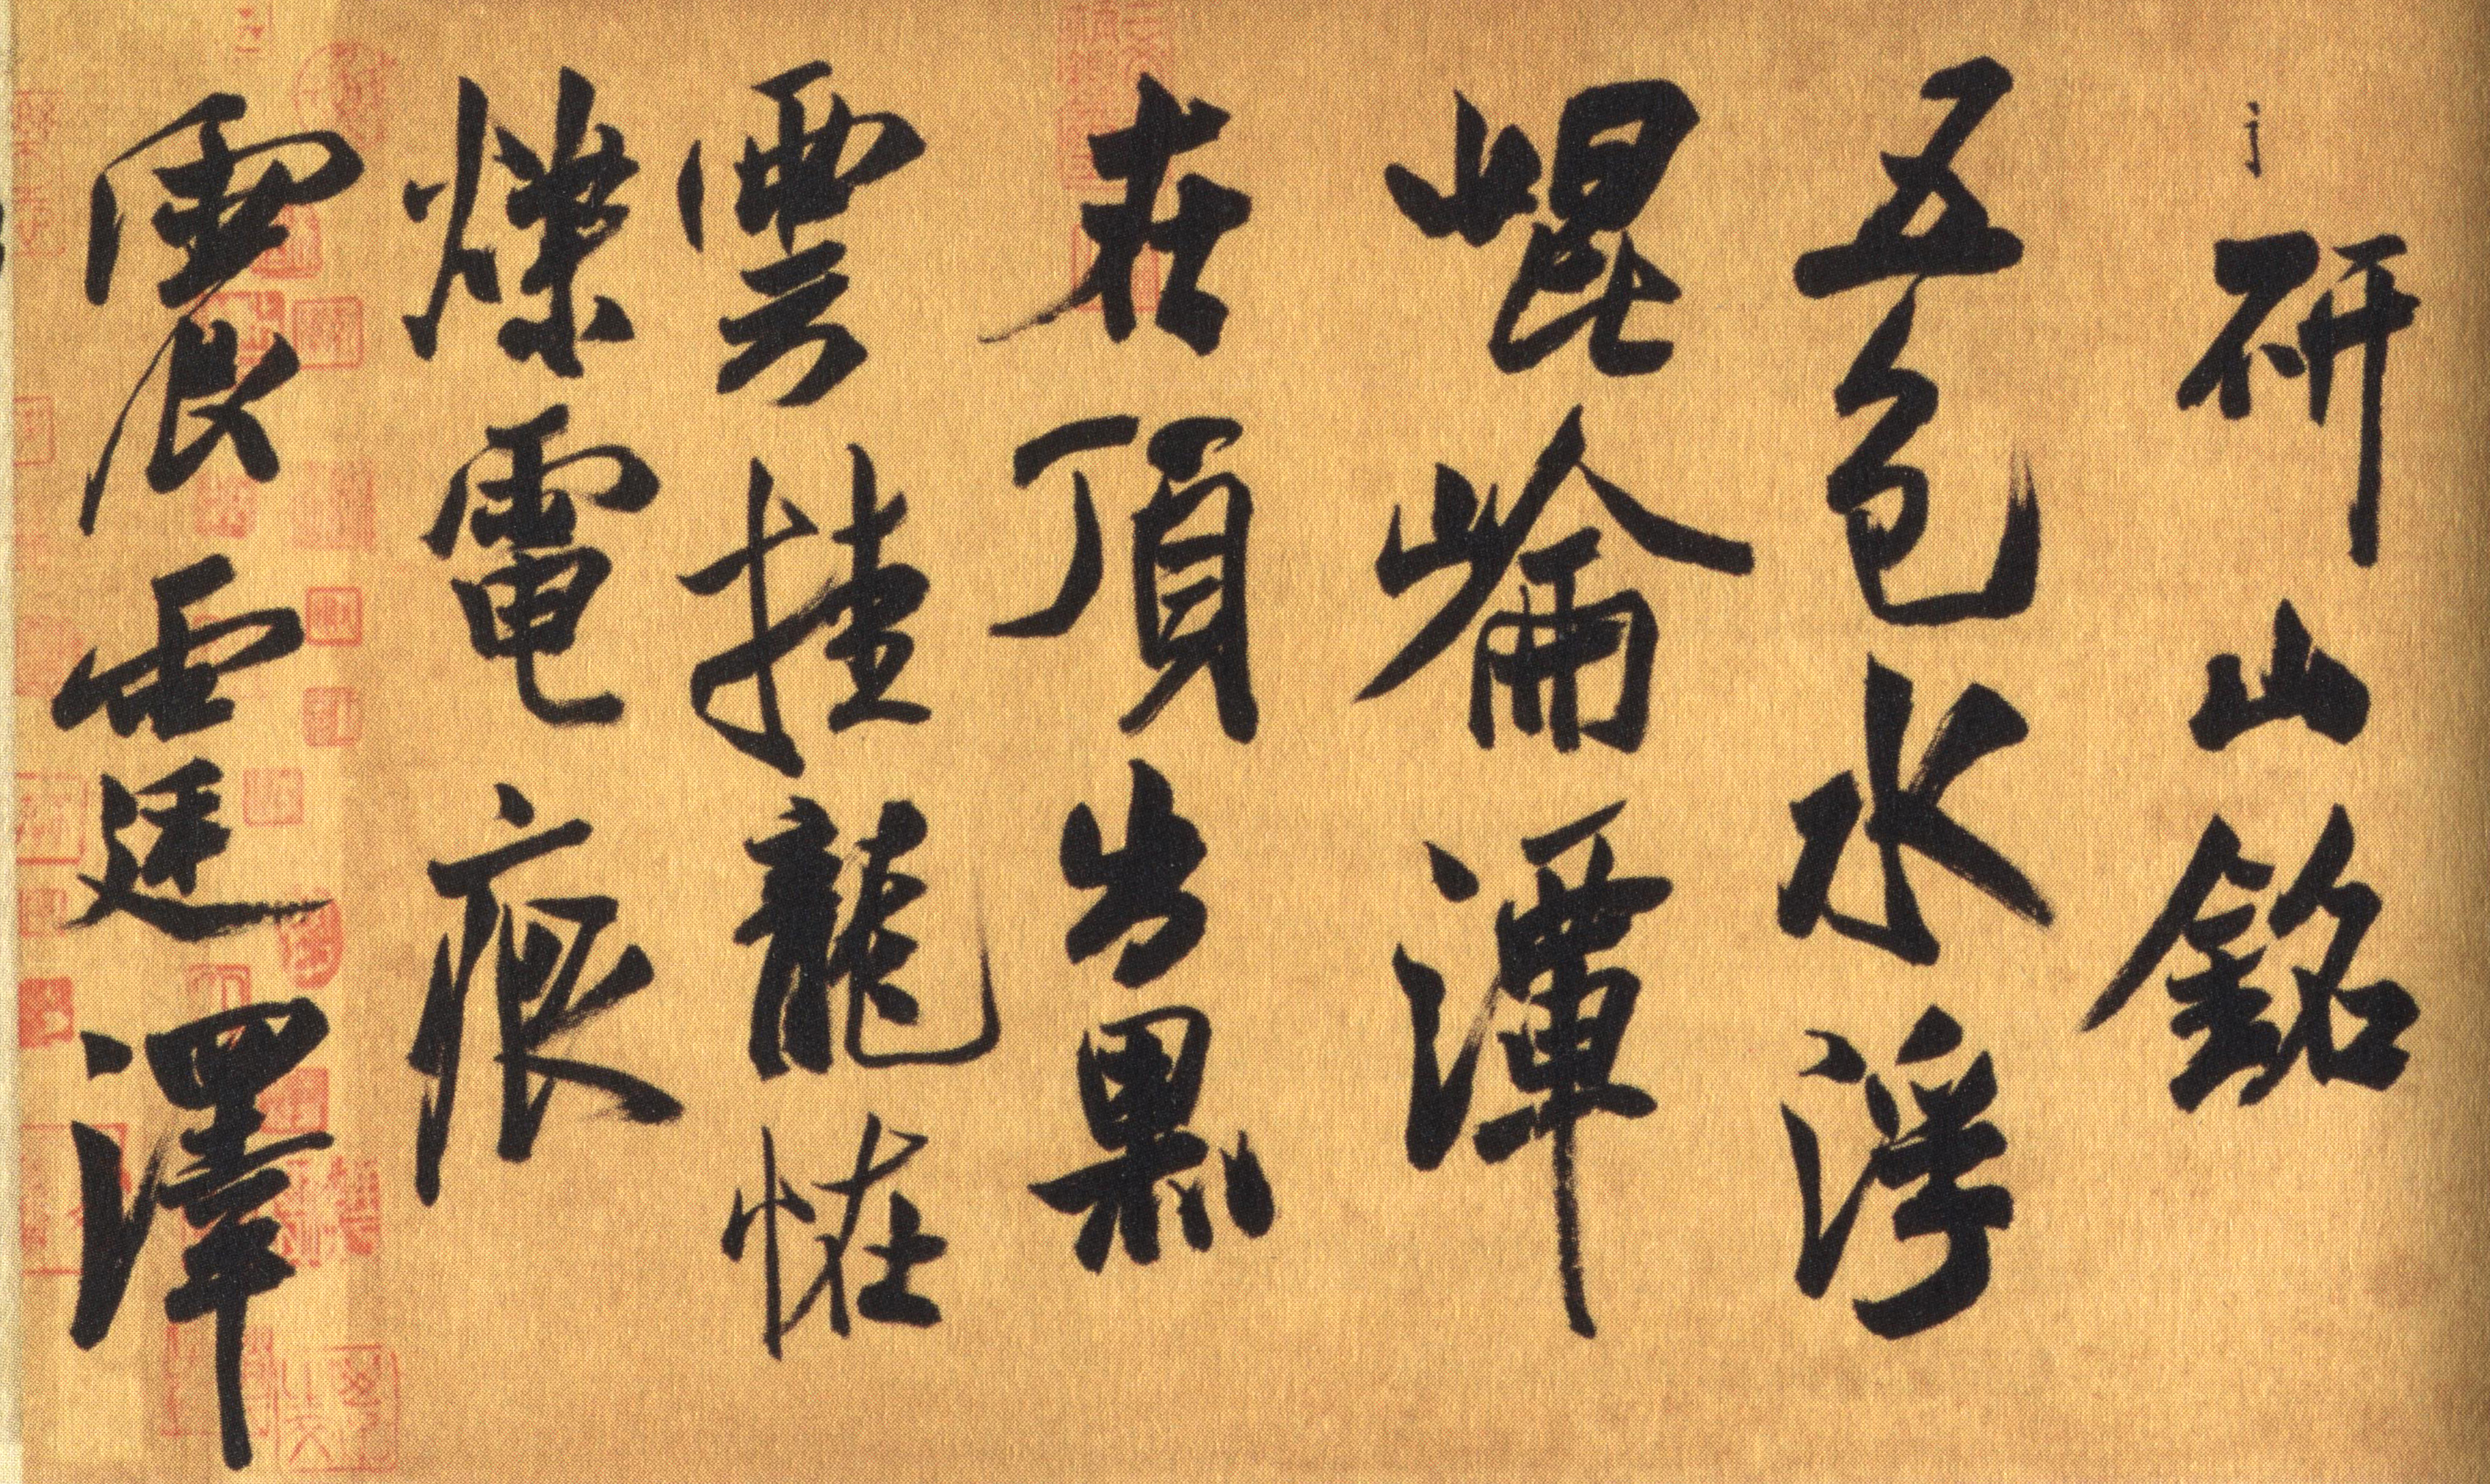 研山銘
五色水浮
崐崘潭
在頂出黑
雲挂龍恠
爍電痕
震霆澤